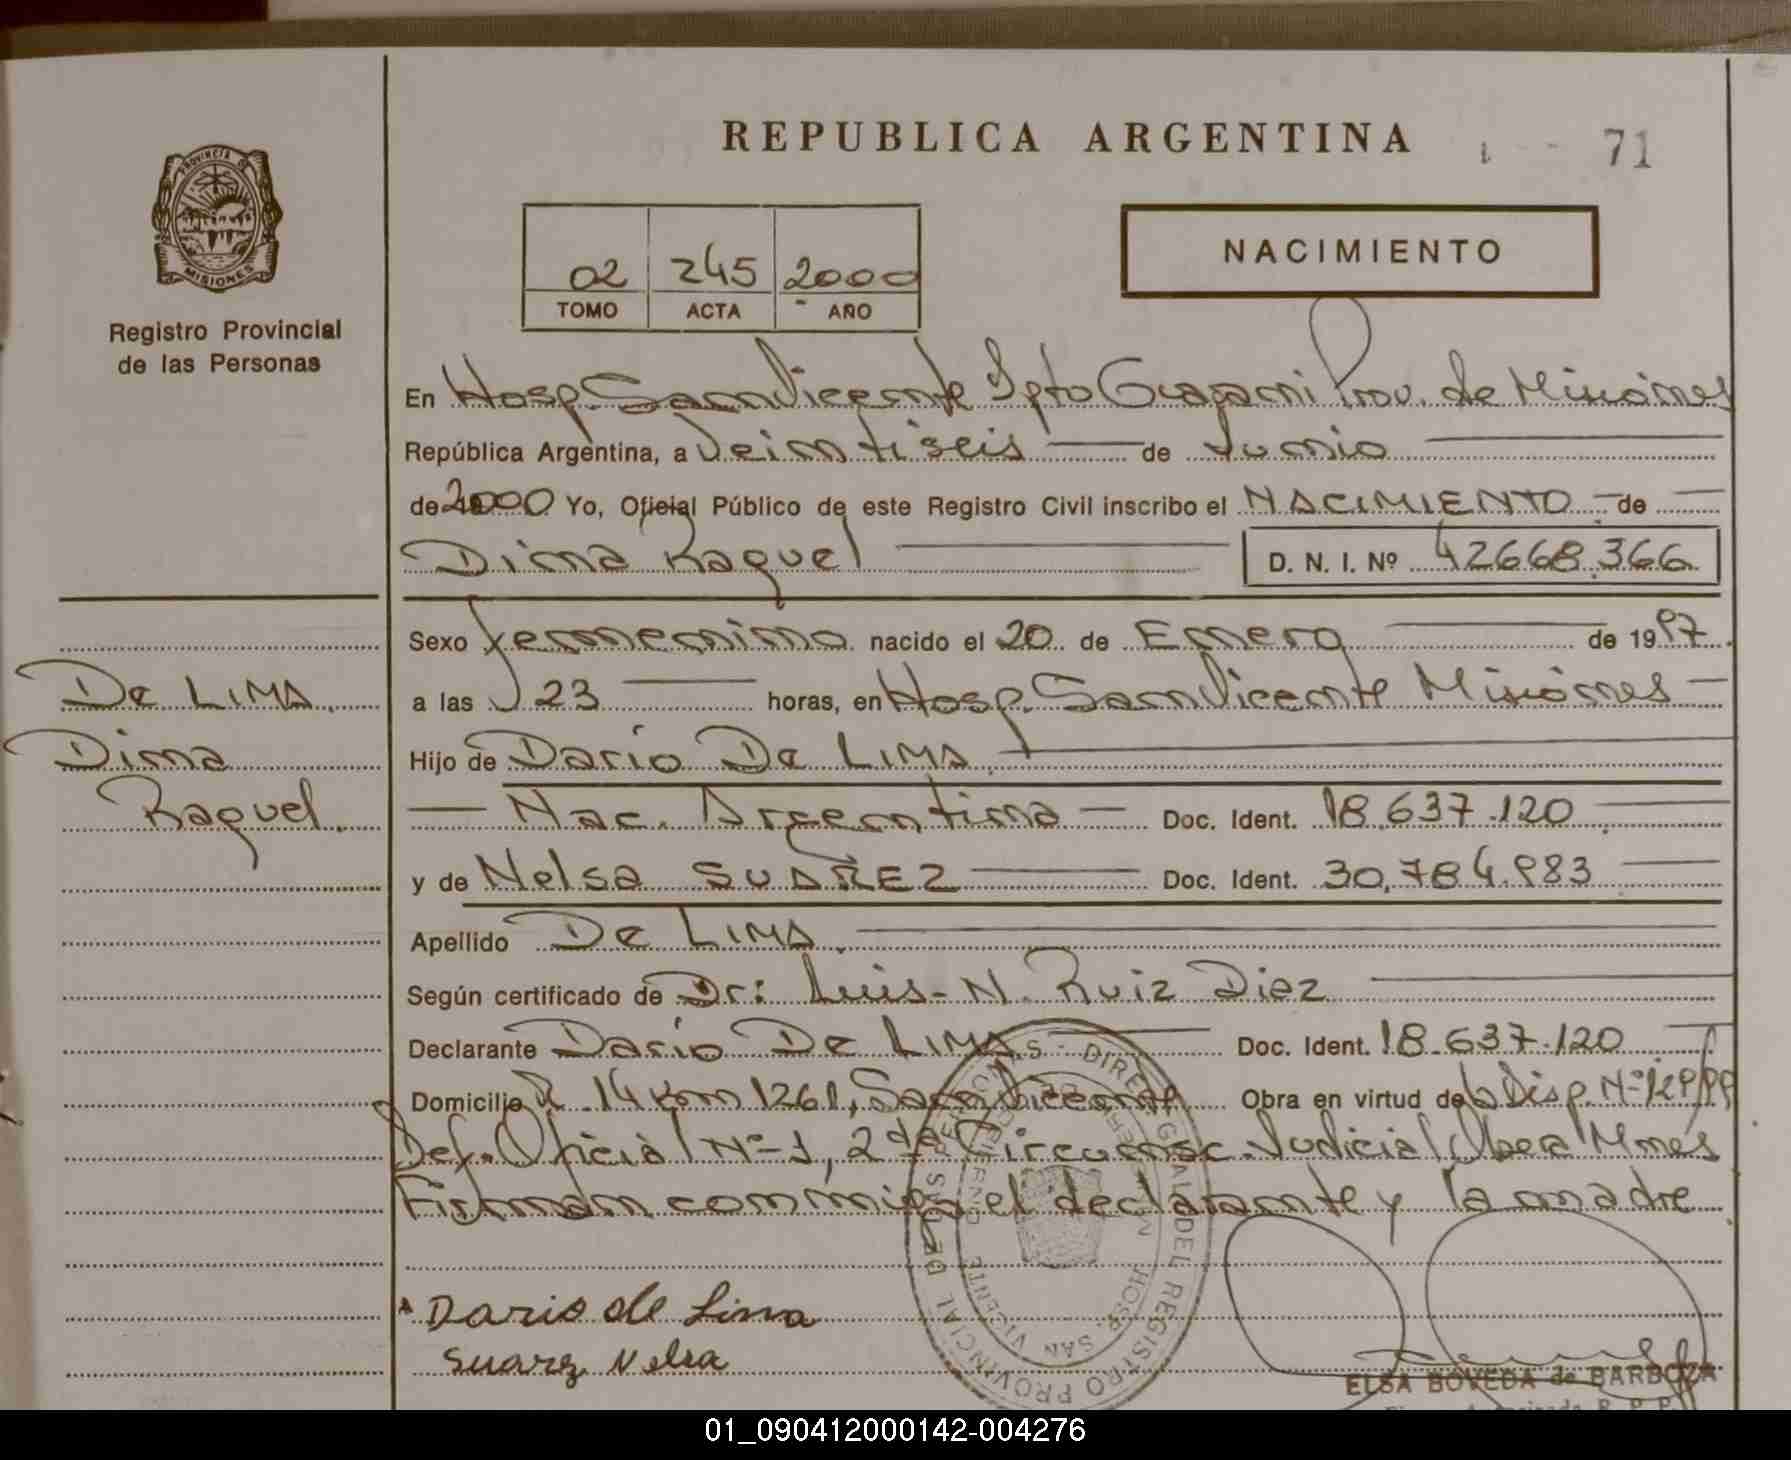 REPUBLICA ARGENTINA
71
PROVINCIA DE
MISIONES
Registro Provincial
de las Personas
02 245 2000
TOMO ACTA AÑO
NACIMIENTO
En Hosp. San Vicente Dpto Guaraní Prov. de Misiones
República Argentina, a Veintiseis de Junio
de 2000 Yo, Oficial Público de este Registro Civil inscribo el NACIMIENTO de
Dina Raquel D. N. I. Nº 42668.366
Sexo femenino nacido el 20 de Enero de 1997
a las 23 horas, en Hosp. San Vicente Misiones
De LIMA
Hijo de Dario De LIMA
Dina
Nac. Argentina Doc. Ident. 18.637.120
Raquel.
y de Nelsa SUAREZ Doc. Ident. 30.784.983
Apellido De LIMA
Según certificado de Dr: Luis N. Ruiz Diez
Declarante Dario De LIMA Doc. Ident. 18.637.120
Domicilio R. 14 Km 1261, San Vicente Obra en virtud de Disp. Nº
Def. Oficial Nº 1, 2da Circunsc. Judicial Obera Mnes
Firman conmigo el declarante y la madre
Dario de Lima
Suarez Nelsa
DIREC. GRAL. DEL REGISTRO PROVINCIAL DE LAS PERSONAS
HOSP. SAN VICENTE
ELSA BOVEDA de BARBOZA
01_090412000142-004276